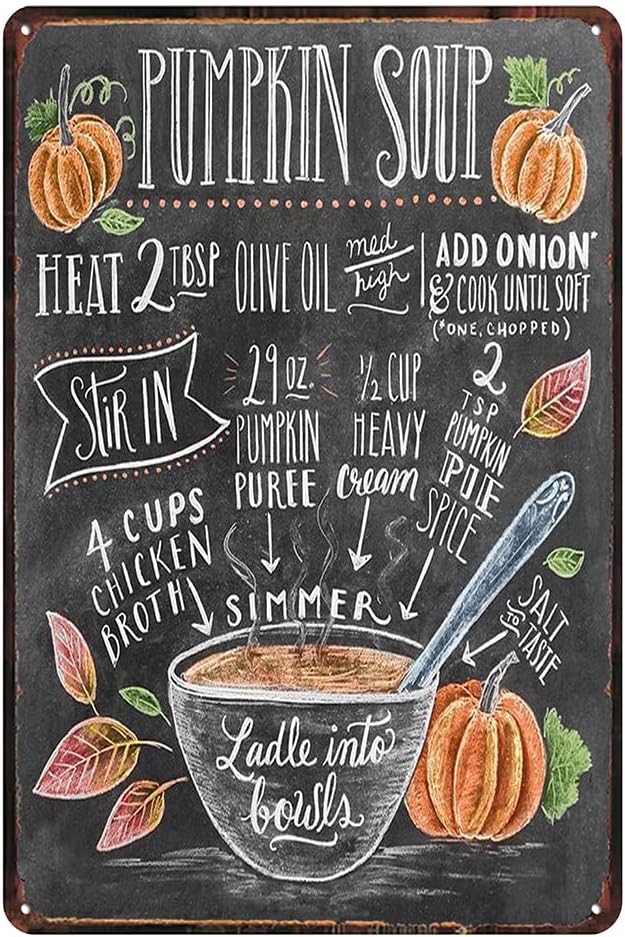 PUMPKIN SOUP
HEAT 2 TBSP OLIVE OIL med/high
ADD ONION*
& COOK UNTIL SOFT
(*ONE, CHOPPED)
STIR IN
4 CUPS
CHICKEN
BROTH
29 oz.
PUMPKIN
PUREE
1/2 CUP
HEAVY
cream
2
TSP
PUMPKIN
PIE
SPICE
SALT
TO
TASTE
SIMMER
Ladle into
bowls